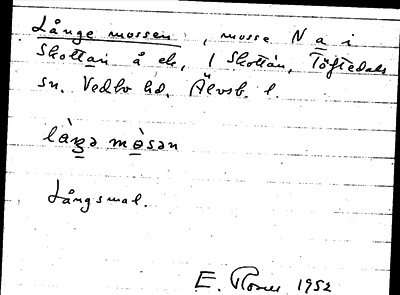 Långe mossen, mosse N a i
Skottan å ek, 1 Skottan, Töftedals
sn. Vedbo hd. Älvsb. l.
làŋə mòsən
Långsmal.
E. 1952